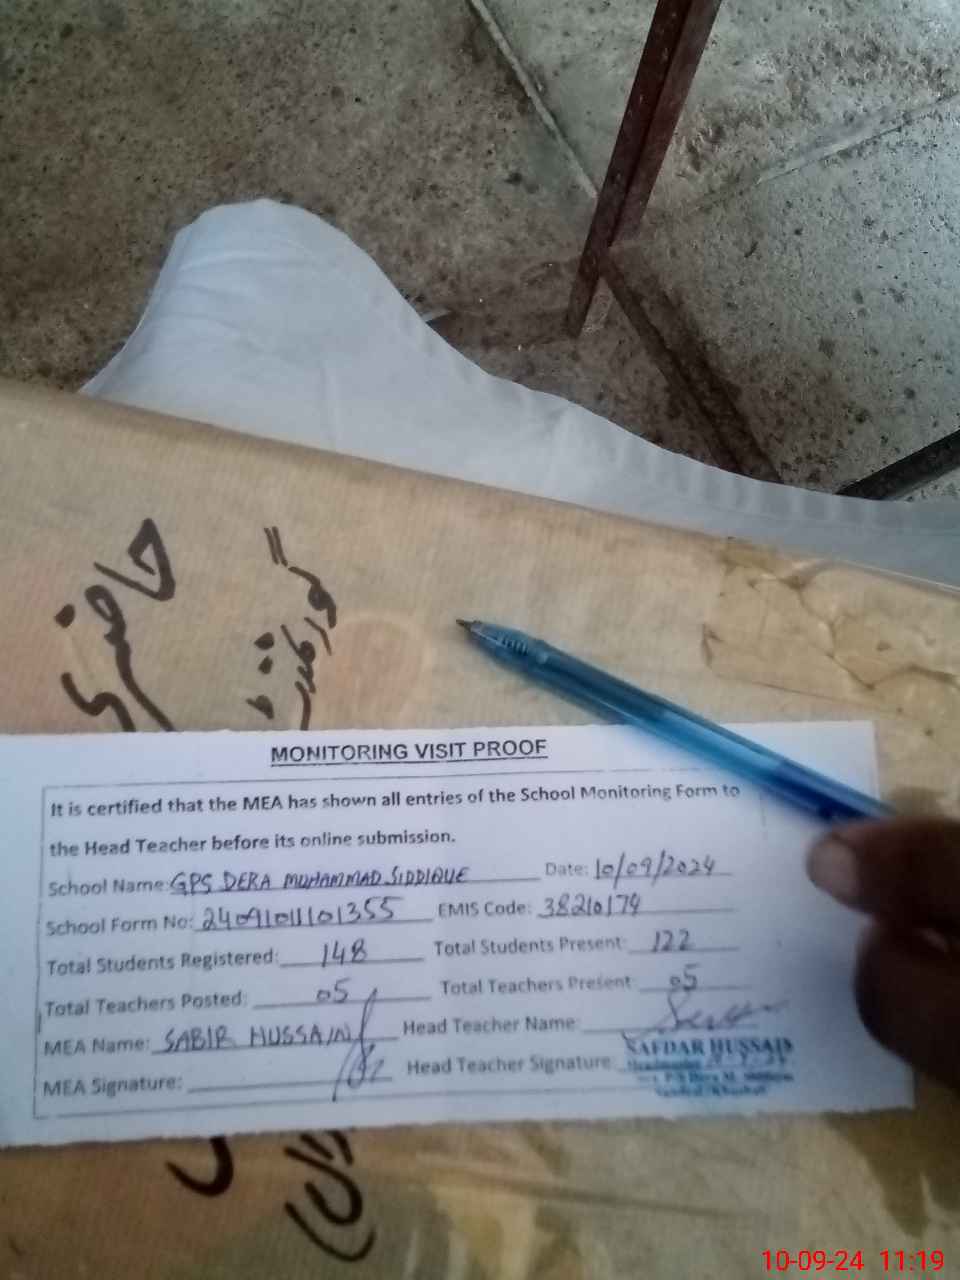 حاضری
گورنمنٹ
MONITORING VISIT PROOF
It is certified that the MEA has shown all entries of the School Monitoring Form to
the Head Teacher before its online submission.
School Name: GPS DERA MUHAMMAD SIDDIQUE Date: 10/09/2024
School Form No: 2409101101355 EMIS Code: 38210179
Total Students Registered: 148 Total Students Present: 122
Total Teachers Posted: 05 Total Teachers Present: 05
MEA Name: SABIR HUSSAIN Head Teacher Name:
MEA Signature: Head Teacher Signature:
SAFDAR HUSSAIN
Headmaster
10-09-24 11:19